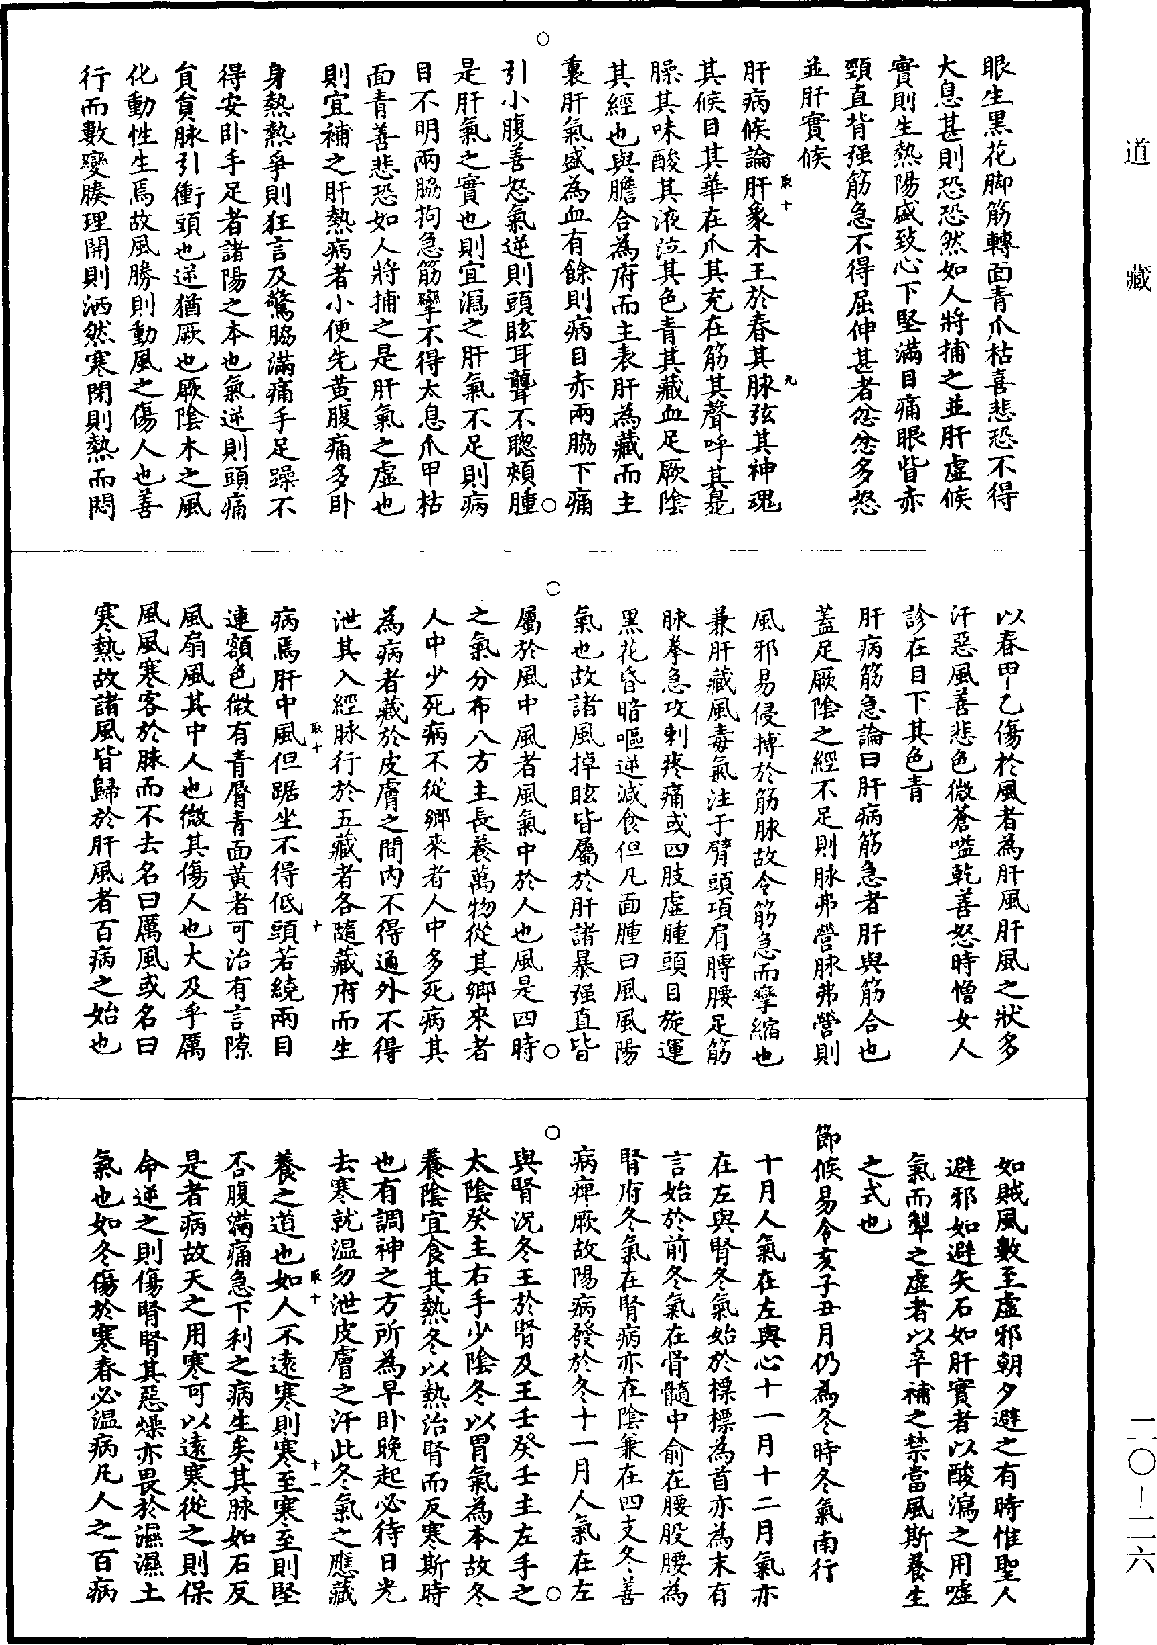 道藏
二〇—二六
眼生黑花脚筋轉面青爪枯喜悲恐不得
大息甚則恐恐然如人將捕之並肝虛候
實則生熱陽盛致心下堅滿目痛眼眥赤
頸直背强筋急不得屈伸甚者忿忿多怒
並肝實候
肝病候論肝象木王於春其脉弦其神魂
其候目其華在爪其充在筋其聲呼其臭
臊其味酸其液泣其色青其藏血足厥陰
其經也與膽合為府而主表肝為藏而主
裏肝氣盛為血有餘則病目赤兩脇下痛
引小腹善怒氣逆則頭眩耳聾不聰頰腫
是肝氣之實也則宜瀉之肝氣不足則病
目不明兩脇拘急筋攣不得太息爪甲枯
面青善悲恐如人將捕之是肝氣之虛也
則宜補之肝熱病者小便先黃腹痛多卧
身熱熱爭則狂言及驚脇滿痛手足躁不
得安卧手足者諸陽之本也氣逆則頭痛
貟貟脉引衝頭也逆猶厥也厥陰木之風
化動性生焉故風勝則動風之傷人也善
行而數變腠理開則洒然寒閉則熱而悶
以春甲乙傷於風者為肝風肝風之狀多
汗惡風善悲色微蒼嗌乾善怒時憎女人
診在目下其色青
肝病筋急論曰肝病筋急者肝與筋合也
蓋足厥陰之經不足則脉弗營脉弗營則
風邪易侵搏於筋脉故令筋急而攣縮也
兼肝藏風毒氣注于臂頭項肩膊腰足筋
脉拳急攻刺疼痛或四肢虛腫頭目旋運
黑花昏暗嘔逆減食但凡面腫曰風風陽
氣也故諸風掉眩皆屬於肝諸暴强直皆
屬於風中風者風氣中於人也風是四時
之氣分布八方主長養萬物從其鄉來者
人中少死病不從鄉來者人中多死病其
為病者藏於皮膚之間内不得通外不得
泄其入經脉行於五藏者各隨藏府而生
病焉肝中風但踞坐不得低頭若繞兩目
連額色微有青脣青面黃者可治有言隙
風扇風其中人也微其傷人也大及乎厲
風風寒客於脉而不去名曰厲風或名曰
寒熱故諸風皆歸於肝風者百病之始也
如賊風數至虛邪朝夕避之有時惟聖人
避邪如避矢石如肝實者以酸瀉之用噓
氣而犁之虛者以辛補之禁當風斯養生
之式也
節候易令亥子丑月仍為冬時冬氣南行
十月人氣在左與心十一月十二月氣亦
在左與腎冬氣始於標標為首亦為末有
言始於前冬氣在骨髓中俞在腰股腰為
腎府冬氣在腎病亦在陰兼在四支冬善
病痺厥故陽病發於冬十一月人氣在左
與腎況冬王於腎及王壬癸壬主左手之
太陰癸主右手少陰冬以胃氣為本故冬
養陰宜食其熱冬以熱治腎而反寒斯時
也有調神之方所為早卧晚起必待日光
去寒就温勿泄皮膚之汗此冬氣之應藏
養之道也如人不遠寒則寒至寒至則堅
否腹滿痛急下利之病生矣其脉如石反
是者病故天之用寒可以遠寒從之則保
命逆之則傷腎腎其惡燥亦畏於濕濕土
氣也如冬傷於寒春必温病凡人之百病